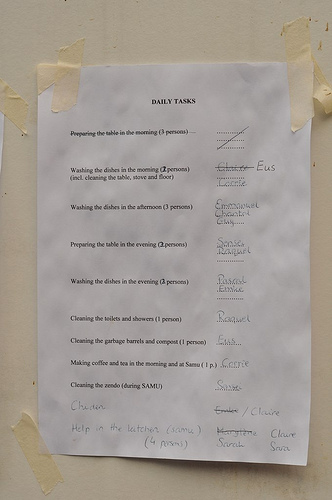 DAILY TASKS
Preparing the table in the morning (3 persons) ...
Washing the dishes in the morning (2 persons) Claire Eus
(incl. cleaning the table, stove and floor) Carrie
Washing the dishes in the afternoon (3 persons) Emmanuel
Chantal
Preparing the table in the evening (2 persons) Sonia
Raquel
Washing the dishes in the evening (2 persons) Pascal
Emilie
Cleaning the toilets and showers (1 person) Raquel
Cleaning the garbage barrels and compost (1 person) Eus
Making coffee and tea in the morning and at Samu (1 p.) Carrie
Cleaning the zendo (during SAMU)
/ Claire
Help in the kitchen (samu) Claire
(4 persons) Sarah Sara